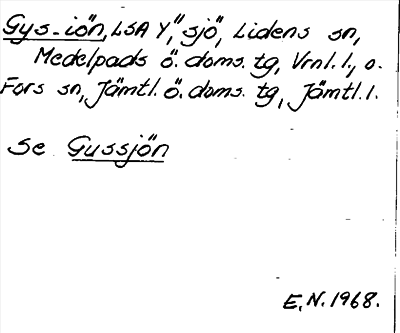 Gys-iön, LSA Y, "sjö", Lidens sn,
Medelpads ö. doms. tg, Vrnl. l., o.
Fors sn, Jämtl. ö. doms. tg, Jämtl. l.
Se Gussjön
E.N. 1968.